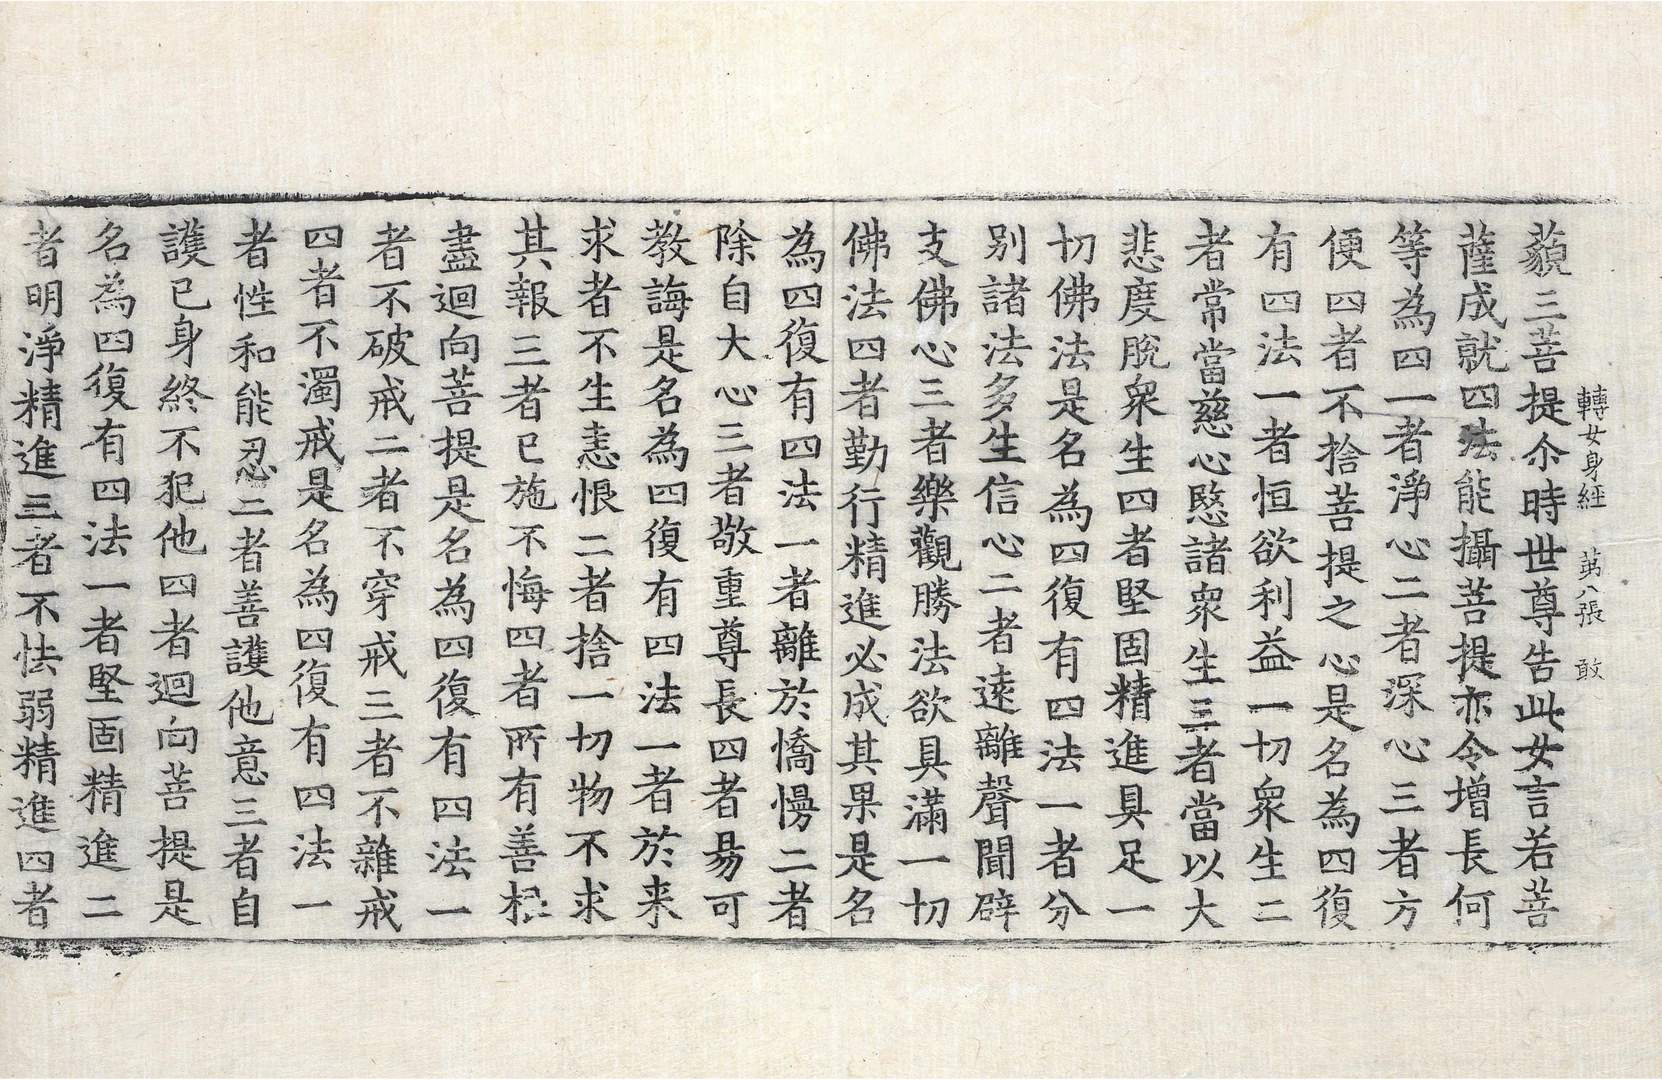 轉女身經 苐八張 敢
藐三菩提尒時世尊告此女言若菩
薩成就四法能攝菩提亦令增長何
等為四一者淨心二者深心三者方
便四者不捨菩提之心是名為四復
有四法一者恒欲利益一切衆生二
者常當慈心愍諸衆生三者當以大
悲度脫衆生四者堅固精進具足一
切佛法是名為四復有四法一者分
別諸法多生信心二者遠離聲聞辟
支佛心三者樂觀勝法欲具滿一切
佛法四者勤行精進必成其果是名
為四復有四法一者離於憍慢二者
除自大心三者敬重尊長四者易可
教誨是名為四復有四法一者於来
求者不生恚恨二者捨一切物不求
其報三者已施不悔四者所有善根
盡迴向菩提是名為四復有四法一
者不破戒二者不穿戒三者不雜戒
四者不濁戒是名為四復有四法一
者性和能忍二者善護他意三者自
護已身終不犯他四者迴向菩提是
名為四復有四法一者堅固精進二
者明淨精進三者不怯弱精進四者